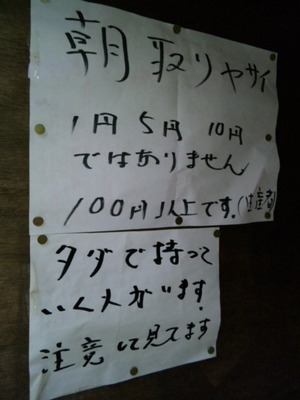 朝取りヤサイ
1円 5円 10円
ではありません
100円以上です.(生産者)
タダで持って
いく人がいます.
注意して見てます